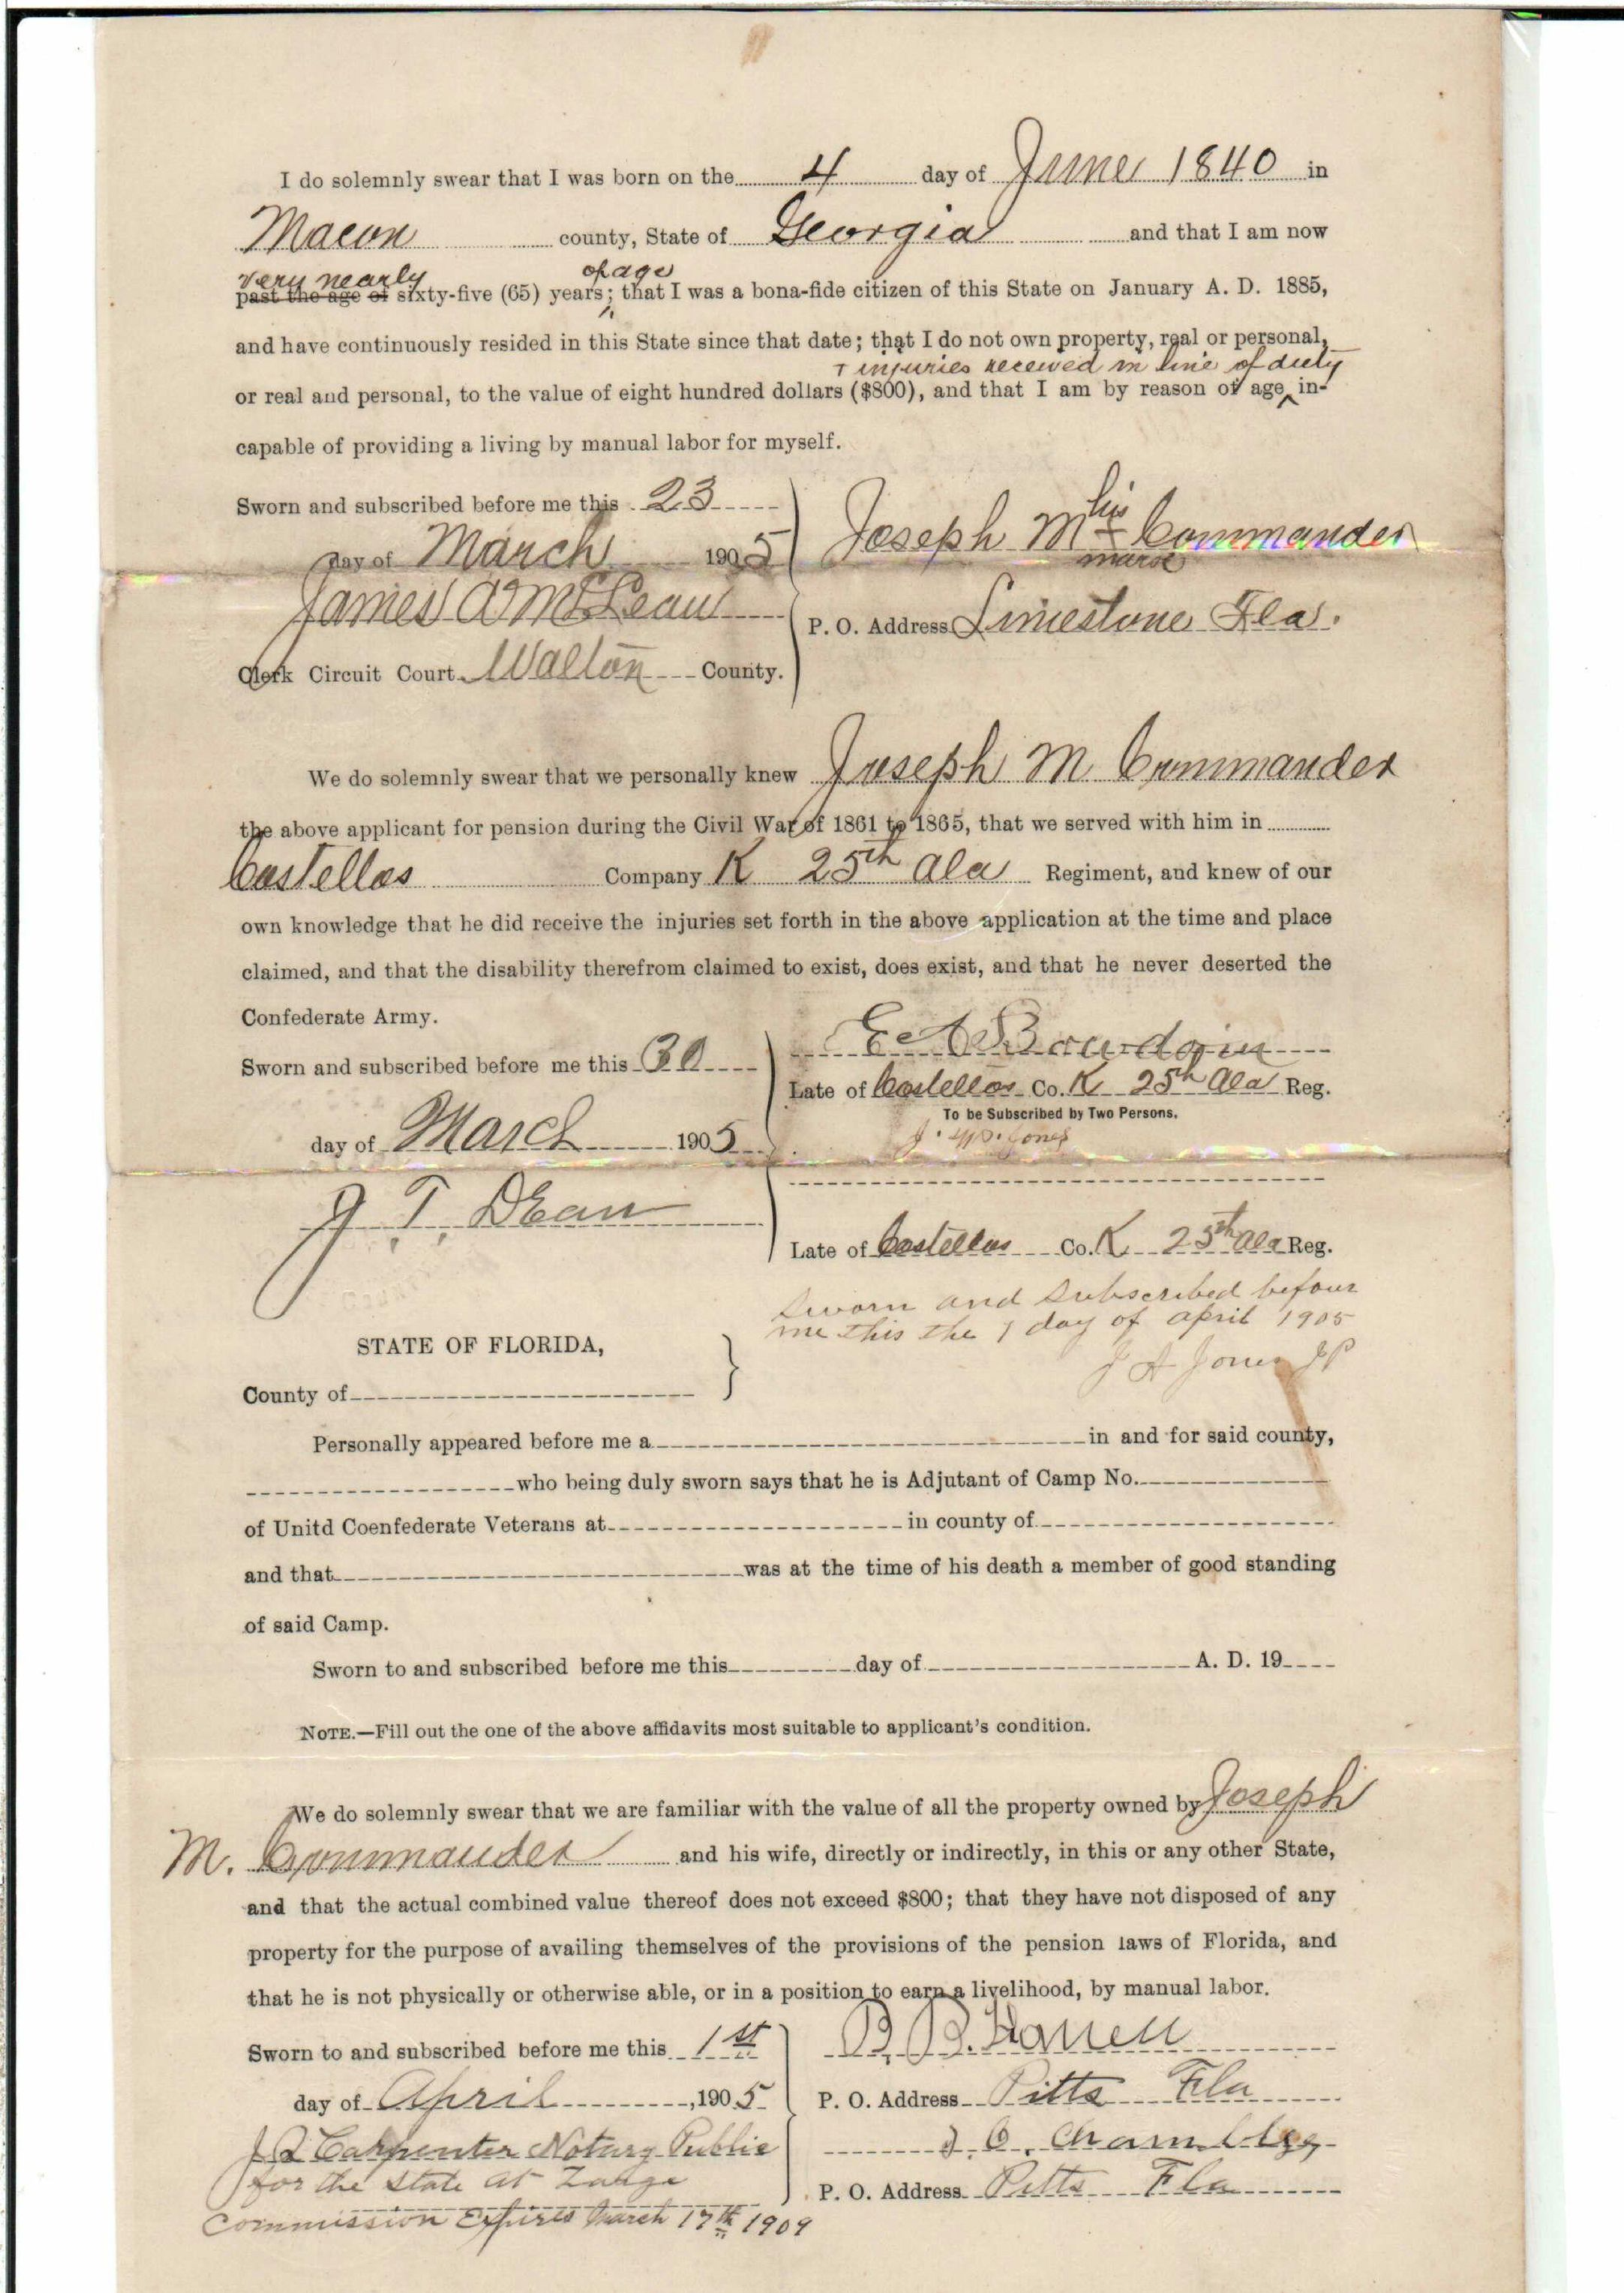 I do solemnly swear that I was born on the 4 day of June 1840 in
Macon county, State of Georgia and that I am now
very nearly of age
past the age of sixty-five (65) years; that I was a bona-fide citizen of this State on January A. D. 1885,
and have continuously resided in this State since that date; that I do not own property, real or personal,
+ injuries received in line of duty
or real and personal, to the value of eight hundred dollars ($800), and that I am by reason of age in-
capable of providing a living by manual labor for myself.
Sworn and subscribed before me this 23
day of March 1905
James A McLean
Clerk Circuit Court Walton County.
his
Joseph M x Commander
mark
P. O. Address Limestone Fla.
We do solemnly swear that we personally knew Joseph M Commander
the above applicant for pension during the Civil War of 1861 to 1865, that we served with him in
Costellos Company K 25th Ala Regiment, and knew of our
own knowledge that he did receive the injuries set forth in the above application at the time and place
claimed, and that the disability therefrom claimed to exist, does exist, and that he never deserted the
Confederate Army.
Sworn and subscribed before me this 30
day of March 1905
J. T. DEan
E A Bowdoin
Late of Costellos Co. K 25th Ala Reg.
To be Subscribed by Two Persons.
J. W. Jones
Late of Costellos Co. K 25th Ala Reg.
Sworn and Subscribed befour
me this the 1 day of april 1905
J A Jones JP
STATE OF FLORIDA,
County of
Personally appeared before me a in and for said county,
who being duly sworn says that he is Adjutant of Camp No.
of Unitd Coenfederate Veterans at in county of
and that was at the time of his death a member of good standing
of said Camp.
Sworn to and subscribed before me this day of A. D. 19
NOTE.—Fill out the one of the above affidavits most suitable to applicant's condition.
We do solemnly swear that we are familiar with the value of all the property owned by Joseph
M. Commander and his wife, directly or indirectly, in this or any other State,
and that the actual combined value thereof does not exceed $800; that they have not disposed of any
property for the purpose of availing themselves of the provisions of the pension laws of Florida, and
that he is not physically or otherwise able, or in a position to earn a livelihood, by manual labor.
Sworn to and subscribed before me this 1st
day of April, 1905
Carpenter Notary Public
for the State at Large
Commission Expires March 17th 1909
B. B. Horrell
P. O. Address Pitts Fla
J. C.
P. O. Address Pitts Fla